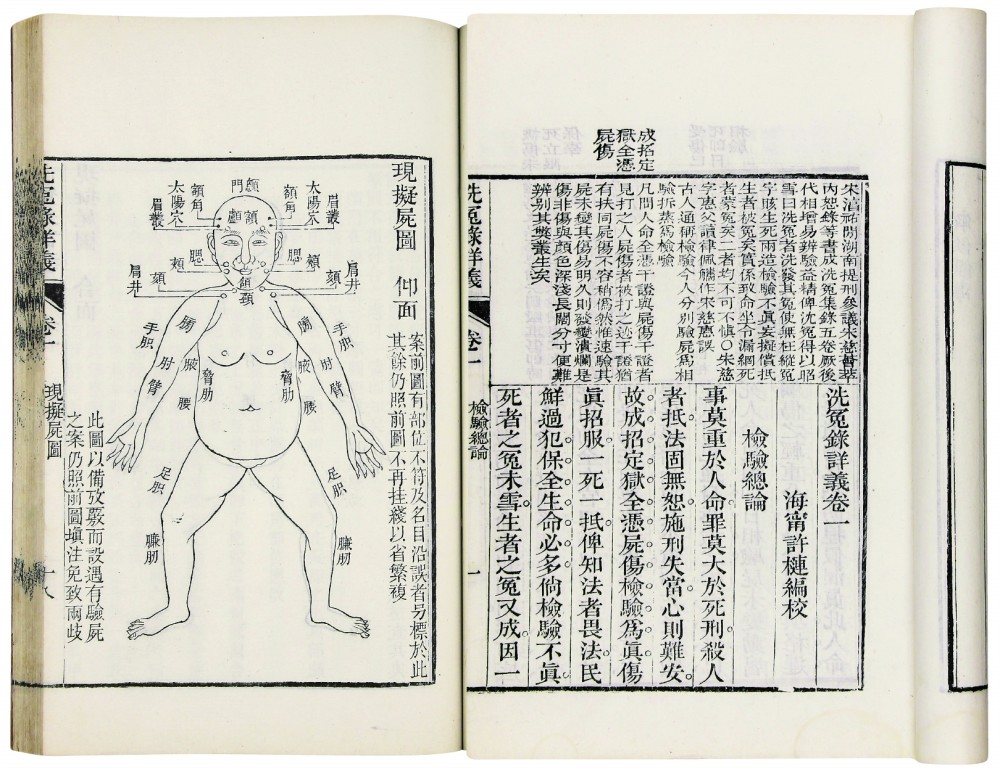 洗冤錄詳義卷一
海甯許槤編校
檢驗總論
事莫重於人命罪莫大於死刑殺人
者抵法固無恕施刑失當心則難安
故成招定獄全憑屍傷檢驗為眞傷
眞招服一死一抵俾知法者畏法民
鮮過犯保全生命必多倘檢驗不眞
死者之冤未雪生者之冤又成因一
宋淳祐間湖南提刑參議朱慈薈萃
內恕錄等書成洗冤集錄五卷厥後
代相增易辨驗益精俾沈冤得以昭
雪曰洗冤者洗發其冤使無枉縱冤
字賅生死兩造檢驗不眞妄擬償抵
生者被冤矣實係致命坐令漏網死
者蒙冤矣二者均不可不慎○朱慈
字惠父讀律佩觿作宋慈應誤
古人通稱檢驗今人分別驗屍為相
驗拆蒸為檢驗
凡問人命全憑干證與屍傷干證者
見打之人屍傷者被打之迹干證猶
有扶同屍傷不容稍僞然惟速驗其
屍未變其傷易明久則發變潰爛是
傷非傷與顏色深淺長闊分寸便難
辨別其獘叢生矣
成招定
獄全憑
屍傷
洗冤錄詳義
卷一
檢驗總論
一
現擬屍圖 仰面
案前圖有部位不符及名目沿誤者易標於此
其餘仍照前圖不再挂綫以省繁複
眉叢
太陽穴
額角
顖門
額顱
額角
太陽穴
眉叢
肩井
頦
頰
腮
腮
頰
頦
肩井
頷頦
頸
手腕
肘
臂
腋
脅肋
腰
手腕
肘
臂
腋
脅肋
腰
足腕
足腕
臁肕
臁肕
此圖以備攷覈而設遇有驗屍
之案仍照前圖塡注免致兩歧
洗冤錄詳義
卷一
現擬屍圖
十八